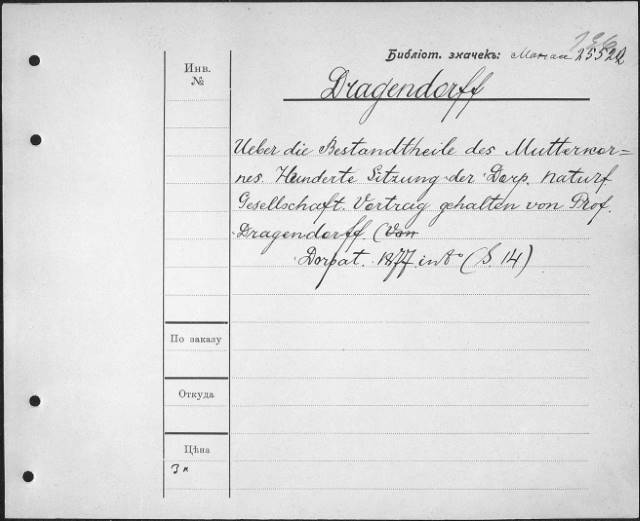 136
Библіот. значекъ: 2552a
Инв.
№
Dragendorff
Ueber die Bestandtheile des Mutterkor=
nes. Hunderte Sitzung der Dorp. Naturf
Gesellschaft. Vortrag gehalten von Prof.
Dragendorff. (Von
Dorpat. 1877. in 8° (S. 14)
По заказу
Откуда
Цѣна